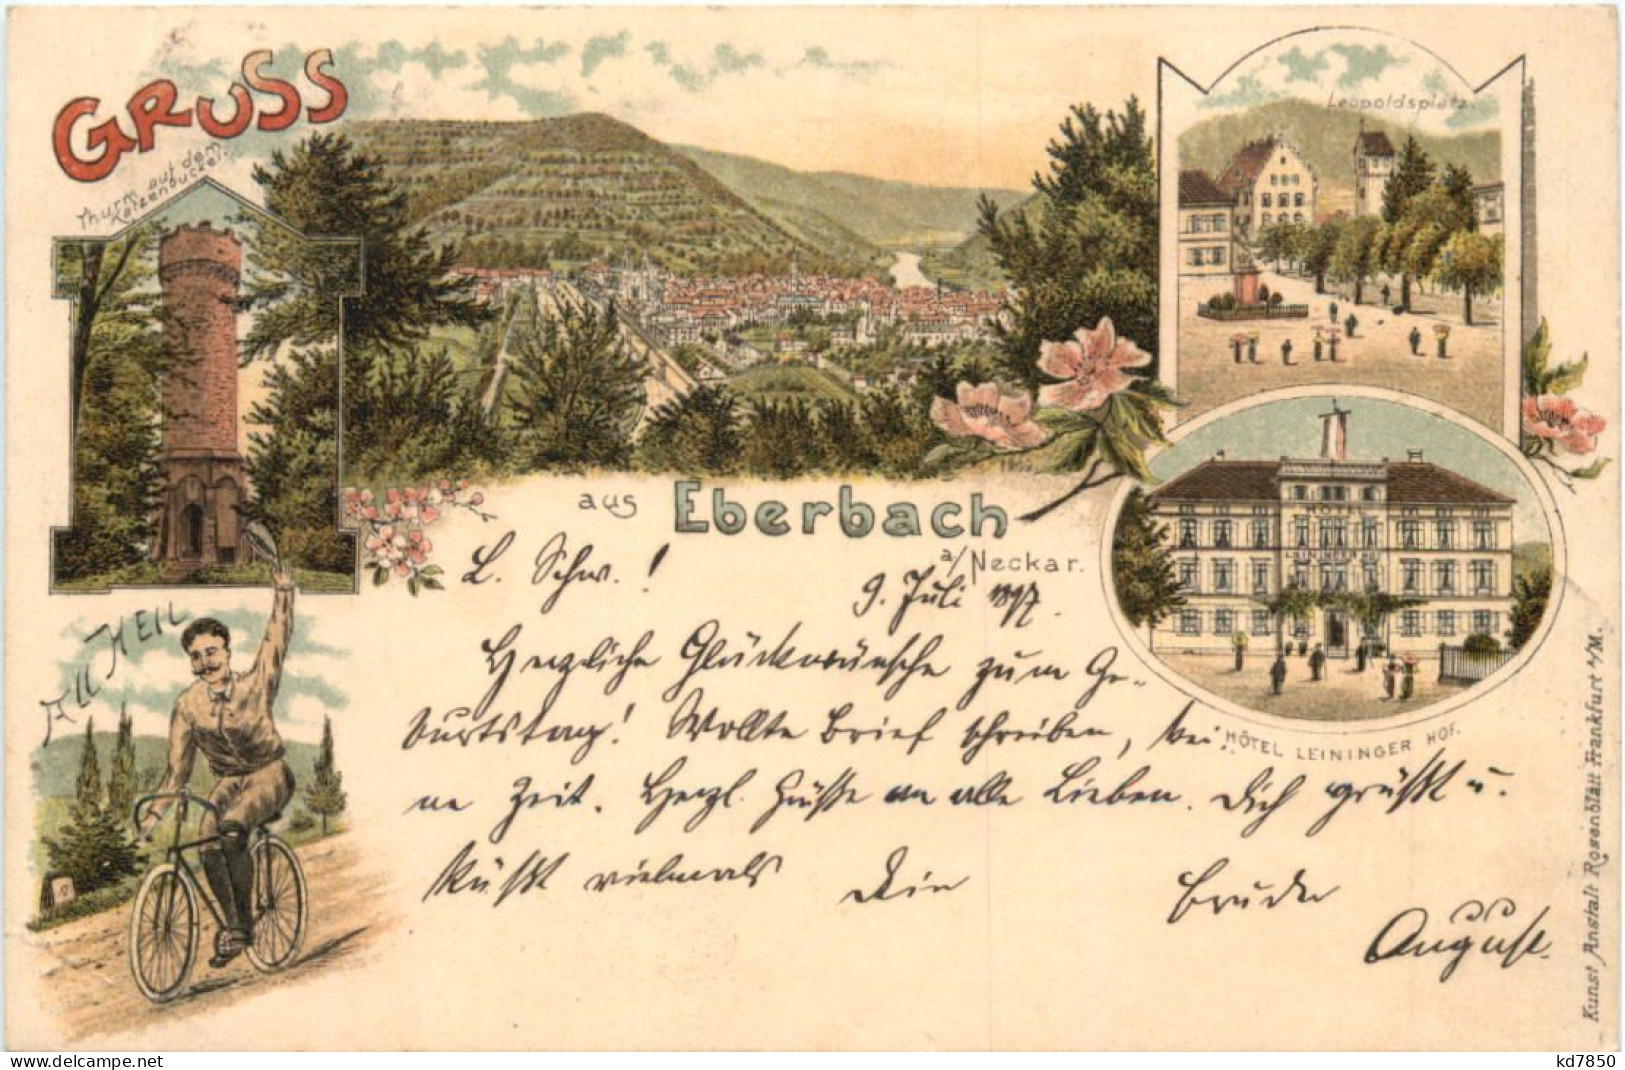 GRUSS
Thurm auf dem
Katzenbuckel.
Leopoldsplatz.
aus Eberbach
a/Neckar.
HOTEL
LEININGER HOF
HÔTEL LEININGER HOF.
ALL HEIL
L. Schw.!
9. Juli 1897.
Herzliche Glückwünsche zum Ge-
burtstag! Wollte Brief schreiben, kei-
ne Zeit. Herzl. Grüße an alle Lieben. Dich grüßt u.
küßt vielmals Dein Bruder
August.
Kunst Anstalt Rosenblatt Frankfurt a/M.
delcampe.net
kd7850